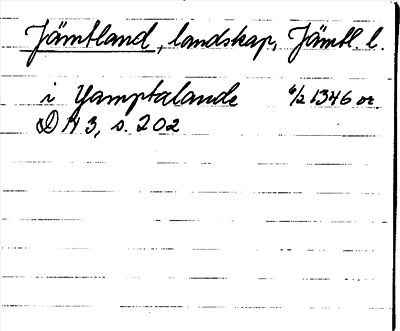 Jämtland, landskap, Jämtl. l.
i Yamptalande 6/2 1346 or.
DN 3, s. 202